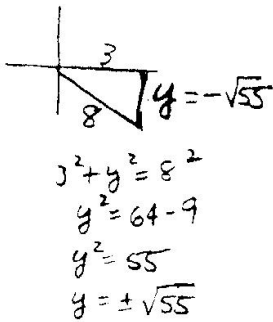 3
8
y = -√55
3² + y² = 8²
y² = 64 - 9
y² = 55
y = ± √55